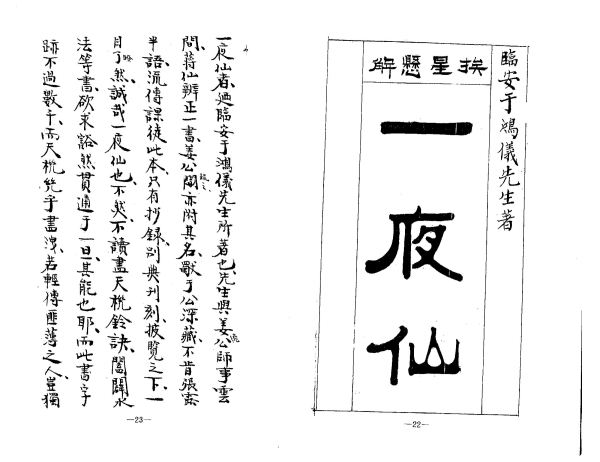 臨安于鴻儀先生著
挨星懸解
一夜仙
—22—
一夜仙者、廼臨安于鴻儀先生所著也、先生與姜公師事雲
間、蔣仙辨正一書、姜公闢亦附其名、獸于公深藏、不肯張
半語流傳課徒、此本只有抄錄、別無刊刻、披覽之下、一
目了然、誠哉一夜仙也、不然、不讀盡天機鈐訣、闔闢水
法等書、欲求豁然貫通于一旦、其能也耶、而此書字
跡不過數千、而天機幾乎畫洩、若輕傳匪薄之人、豈獨
—23—